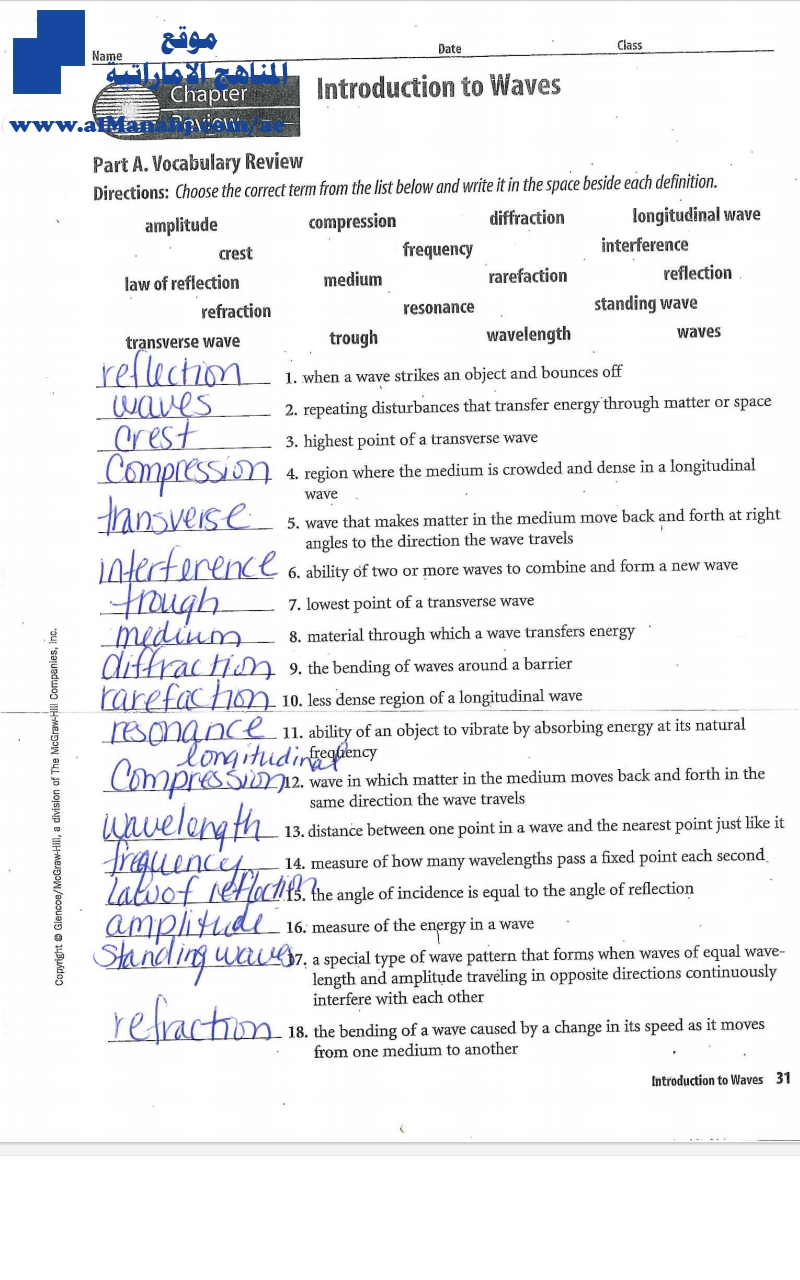 موقع
المناهج الاماراتية
www.alManahj.com/ae
Name Date Class
Chapter
Review
Introduction to Waves
Part A. Vocabulary Review
Directions: Choose the correct term from the list below and write it in the space beside each definition.
amplitude compression diffraction longitudinal wave
crest frequency interference
law of reflection medium rarefaction reflection
refraction resonance standing wave
transverse wave trough wavelength waves
reflection 1. when a wave strikes an object and bounces off
waves 2. repeating disturbances that transfer energy through matter or space
Crest 3. highest point of a transverse wave
Compression 4. region where the medium is crowded and dense in a longitudinal
wave
transverse 5. wave that makes matter in the medium move back and forth at right
angles to the direction the wave travels
interference 6. ability of two or more waves to combine and form a new wave
trough 7. lowest point of a transverse wave
medium 8. material through which a wave transfers energy
diffraction 9. the bending of waves around a barrier
rarefaction 10. less dense region of a longitudinal wave
resonance 11. ability of an object to vibrate by absorbing energy at its natural
frequency
longitudinal
Compression 12. wave in which matter in the medium moves back and forth in the
same direction the wave travels
wavelength 13. distance between one point in a wave and the nearest point just like it
frequency 14. measure of how many wavelengths pass a fixed point each second
law of reflection 15. the angle of incidence is equal to the angle of reflection
amplitude 16. measure of the energy in a wave
Standing waves 17. a special type of wave pattern that forms when waves of equal wave-
length and amplitude traveling in opposite directions continuously
interfere with each other
refraction 18. the bending of a wave caused by a change in its speed as it moves
from one medium to another
Introduction to Waves 31
Copyright © Glencoe/McGraw-Hill, a division of The McGraw-Hill Companies, Inc.